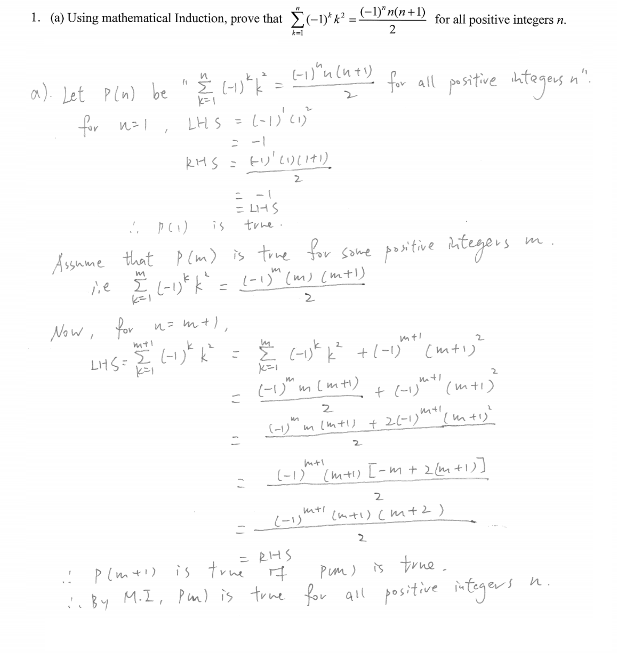 1. (a) Using mathematical Induction, prove that \sum_{k=1}^{n} (-1)^k k^2 = \frac{(-1)^n n(n+1)}{2} for all positive integers n.
a). Let P(n) be " \sum_{k=1}^{n} (-1)^k k^2 = \frac{(-1)^n n(n+1)}{2} for all positive integers n".
for n=1, LHS = (-1)^1 (1)^2
= -1
RHS = \frac{(-1)^1 (1)(1+1)}{2}
= -1
= LHS
∴ P(1) is true.
Assume that P(m) is true for some positive integers m.
i.e \sum_{k=1}^{m} (-1)^k k^2 = \frac{(-1)^m (m) (m+1)}{2}
Now, for n = m+1,
LHS = \sum_{k=1}^{m+1} (-1)^k k^2 = \sum_{k=1}^{m} (-1)^k k^2 + (-1)^{m+1} (m+1)^2
= \frac{(-1)^m m(m+1)}{2} + (-1)^{m+1} (m+1)^2
= \frac{(-1)^m m(m+1) + 2(-1)^{m+1} (m+1)^2}{2}
= \frac{(-1)^{m+1} (m+1) [-m + 2(m+1)]}{2}
= \frac{(-1)^{m+1} (m+1) (m+2)}{2}
= RHS
∴ P(m+1) is true if P(m) is true.
∴ By M.I, P(n) is true for all positive integers n.